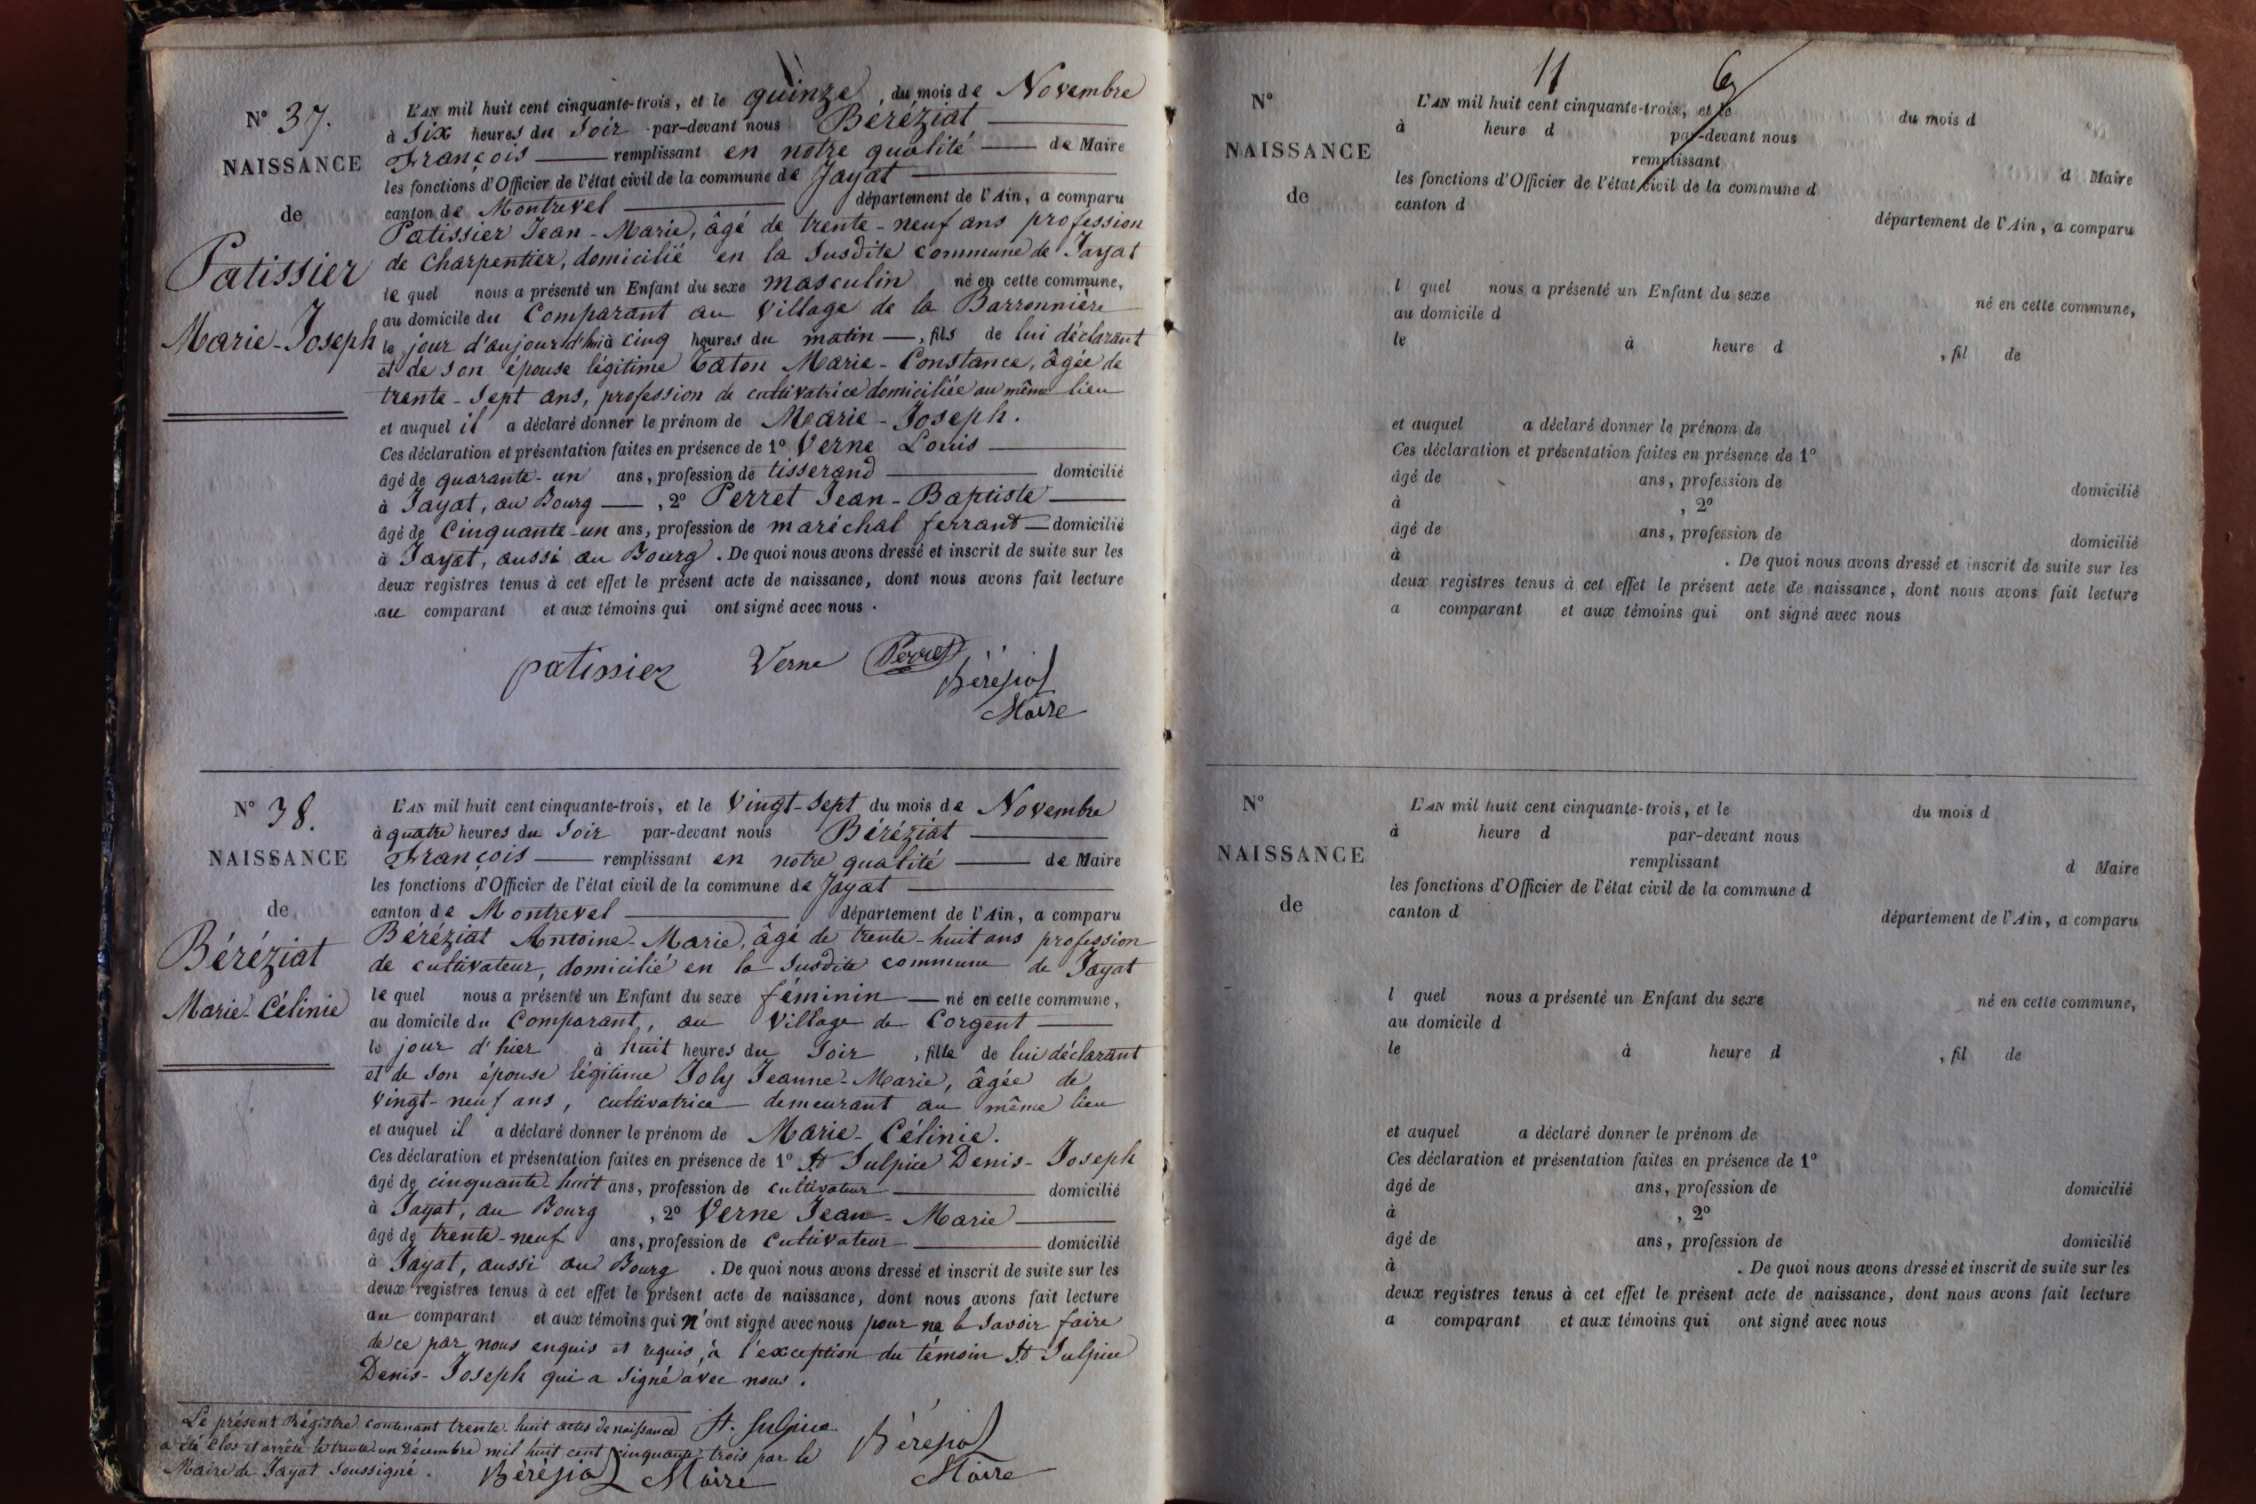 N° 37.
NAISSANCE
de
Patissier
Marie-Joseph
L'AN mil huit cent cinquante-trois, et le quinze, du mois de Novembre
à Six heures du Soir par-devant nous Béréziat
François remplissant en notre qualité de Maire
les fonctions d'Officier de l'état civil de la commune de Jayat
canton de Montrevel département de l'Ain, a comparu
Patissier Jean-Marie, âgé de trente-neuf ans profession
de Charpentier, domicilié en la Susdite commune de Jayat
le quel nous a présenté un Enfant du sexe masculin né en cette commune,
au domicile du Comparant au Village de la Barronnière
le jour d'aujourd'hui à cinq heures du matin, fils de lui déclarant
et de son épouse légitime Caton Marie-Constance, âgée de
trente-sept ans, profession de cultivatrice domiciliée au même lieu
et auquel il a déclaré donner le prénom de Marie-Joseph.
Ces déclaration et présentation faites en présence de 1° Verne Louis
âgé de quarante-un ans, profession de tisserand domicilié
à Jayat, au Bourg, 2° Perret Jean-Baptiste
âgé de Cinquante-un ans, profession de maréchal ferrant domicilié
à Jayat, aussi au Bourg. De quoi nous avons dressé et inscrit de suite sur les
deux registres tenus à cet effet le présent acte de naissance, dont nous avons fait lecture
au comparant et aux témoins qui ont signé avec nous.
patissier Verne Perret Béréziat
Maire
N° 38.
NAISSANCE
de
Béréziat
Marie-Célinie
L'AN mil huit cent cinquante-trois, et le Vingt-Sept du mois de Novembre
à quatre heures du Soir par-devant nous Béréziat
François remplissant en notre qualité de Maire
les fonctions d'Officier de l'état civil de la commune de Jayat
canton de Montrevel département de l'Ain, a comparu
Béréziat Antoine-Marie, âgé de trente-huit ans profession
de cultivateur, domicilié en la Susdite commune de Jayat
le quel nous a présenté un Enfant du sexe féminin né en cette commune,
au domicile du Comparant, au Village de Corgent
le jour d'hier à huit heures du Soir, fille de lui déclarant
et de son épouse légitime Joly Jeanne-Marie, âgée de
Vingt-neuf ans, cultivatrice demeurant au même lieu
et auquel il a déclaré donner le prénom de Marie-Célinie.
Ces déclaration et présentation faites en présence de 1° St Sulpice Denis-Joseph
âgé de cinquante-huit ans, profession de cultivateur domicilié
à Jayat, au Bourg, 2° Verne Jean-Marie
âgé de trente-neuf ans, profession de Cultivateur domicilié
à Jayat, aussi au Bourg. De quoi nous avons dressé et inscrit de suite sur les
deux registres tenus à cet effet le présent acte de naissance, dont nous avons fait lecture
au comparant et aux témoins qui n'ont signé avec nous pour ne le Savoir faire
de ce par nous enquis et requis, à l'exception du témoin St Sulpice
Denis-Joseph qui a Signé avec nous.
St. Sulpice Béréziat
Maire
Le présent Régistre contenant trente-huit actes de naissance
a été Clos et arrêté le trente un Décembre mil huit cent cinquante-trois par le
Maire de Jayat Soussigné. Béréziat Maire
11 6
N°
NAISSANCE
de
L'AN mil huit cent cinquante-trois, et le du mois d
à heure d par-devant nous
remplissant d Maire
les fonctions d'Officier de l'état civil de la commune d
canton d département de l'Ain, a comparu
l quel nous a présenté un Enfant du sexe né en cette commune,
au domicile d
le à heure d , fil de
et auquel a déclaré donner le prénom de
Ces déclaration et présentation faites en présence de 1°
âgé de ans, profession de domicilié
à , 2°
âgé de ans, profession de domicilié
à . De quoi nous avons dressé et inscrit de suite sur les
deux registres tenus à cet effet le présent acte de naissance, dont nous avons fait lecture
a comparant et aux témoins qui ont signé avec nous
N°
NAISSANCE
de
L'AN mil huit cent cinquante-trois, et le du mois d
à heure d par-devant nous
remplissant d Maire
les fonctions d'Officier de l'état civil de la commune d
canton d département de l'Ain, a comparu
l quel nous a présenté un Enfant du sexe né en cette commune,
au domicile d
le à heure d , fil de
et auquel a déclaré donner le prénom de
Ces déclaration et présentation faites en présence de 1°
âgé de ans, profession de domicilié
à , 2°
âgé de ans, profession de domicilié
à . De quoi nous avons dressé et inscrit de suite sur les
deux registres tenus à cet effet le présent acte de naissance, dont nous avons fait lecture
a comparant et aux témoins qui ont signé avec nous